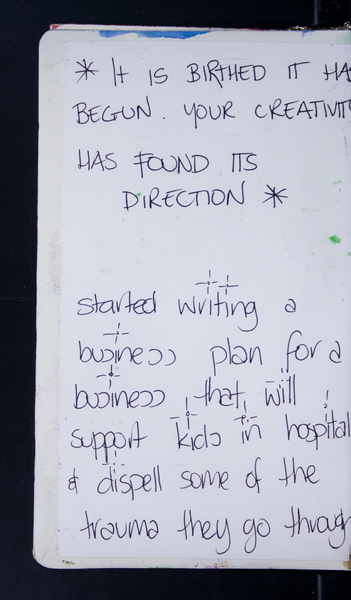 * IT IS BIRTHED IT HA
BEGUN. YOUR CREATIVIT
HAS FOUND ITS
DIRECTION *
started writing a
business plan for a
business that will
support kids in hospital
& dispell some of the
trauma they go through